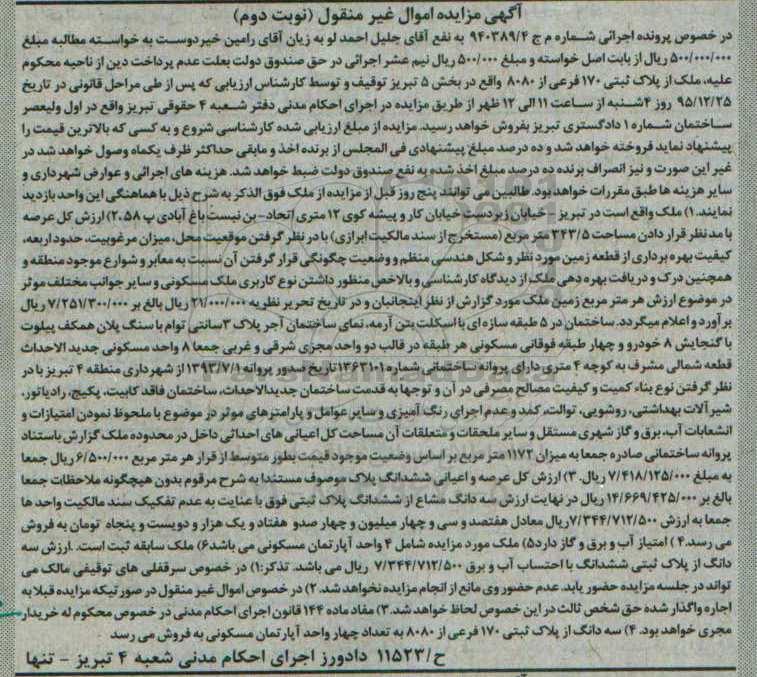 آگهی مزایده اموال غیر منقول (نوبت دوم)
در خصوص پرونده اجرائی شماره م ج ۹۴۰۳۸۹/۴ به نفع آقای جلیل احمد لو به زیان آقای رامین خیردوست به خواسته مطالبه مبلغ
۵۰۰/۰۰۰/۰۰۰ ریال از بابت اصل خواسته و مبلغ ۵۰۰/۰۰۰ ریال نیم عشر اجرائی در حق صندوق دولت بعلت عدم پرداخت دین از ناحیه محکوم
علیه، ملک از پلاک ثبتی ۱۷۰ فرعی از ۸۰۸۰ واقع در بخش ۵ تبریز توقیف و توسط کارشناس ارزیابی که پس از طی مراحل قانونی در تاریخ
۹۵/۱۲/۲۵ روز ۴شنبه از ساعت ۱۱ الی ۱۲ ظهر از طریق مزایده در اجرای احکام مدنی دفتر شعبه ۴ حقوقی تبریز واقع در اول ولیعصر
ساختمان شماره ۱ دادگستری تبریز بفروش خواهد رسید. مزایده از مبلغ ارزیابی شده کارشناسی شروع و به کسی که بالاترین قیمت را
پیشنهاد نماید فروخته خواهد شد و ده درصد مبلغ پیشنهادی فی المجلس از برنده اخذ و مابقی حداکثر ظرف یکماه وصول خواهد شد در
غیر این صورت و نیز انصراف برنده ده درصد مبلغ اخذ شده به نفع صندوق دولت ضبط خواهد شد. هزینه های اجرائی و عوارض شهرداری و
سایر هزینه ها طبق مقررات خواهد بود. طالبین می توانند پنج روز قبل از مزایده از ملک فوق الذکر به شرح ذیل با هماهنگی این واحد بازدید
نمایند. ۱) ملک واقع است در تبریز – خیابان زبردست خیابان کار و پیشه کوی ۱۲ متری اتحاد- بن نیست باغ آبادی پ ۲.۵۸) ارزش کل عرصه
با مد نظر قرار دادن مساحت ۳۴۳/۵ متر مربع (مستخرج از سند مالکیت ابرازی) با در نظر گرفتن موقعیت محل، میزان مرغوبیت، حدود اربعه،
کیفیت بهره برداری از قطعه زمین مورد نظر و شکل هندسی منظم و وضعیت چگونگی قرار گرفتن آن نسبت به معابر و شوارع موجود منطقه و
همچنین درک و دریافت بهره دهی ملک از دیدگاه کارشناسی و بالاخص منظور داشتن نوع کاربری ملک مسکونی و سایر جوانب مختلف موثر
در موضوع ارزش هر متر مربع زمین ملک مورد گزارش از نظر اینجانبان و در تاریخ تحریر نظریه ۲۱/۰۰۰/۰۰۰ ریال بالغ بر ۷/۲۵۱/۳۰۰/۰۰۰ ریال
برآورد و اعلام میگردد. ساختمان در ۵ طبقه سازه ای با اسکلت بتن آرمه، نمای ساختمان آجر پلاک ۳سانتی توام با سنگ پلان همکف پیلوت
با گنجایش ۸ خودرو و چهار طبقه فوقانی مسکونی هر طبقه در قالب دو واحد مجزی شرقی و غربی جمعا ۸ واحد مسکونی جدید الاحداث
قطعه شمالی مشرف به کوچه ۴ متری دارای پروانه ساختمانی شماره ۱۳۶۳۱۰۱ تاریخ صدور پروانه ۱۳۹۳/۷/۱ از شهرداری منطقه ۴ تبریز با در
نظر گرفتن نوع بناء کمیت و کیفیت مصالح مصرفی در آن و توجها به قدمت ساختمان جدیدالاحداث، ساختمان فاقد کابینت، پکیج، رادیاتور،
شیرآلات بهداشتی، روشویی، توالت، کمد و عدم اجرای رنگ آمیزی و سایر عوامل و پارامترهای موثر در موضوع با ملحوظ نمودن امتیازات و
انشعابات آب، برق و گاز شهری مستقل و سایر ملحقات و متعلقات آن مساحت کل اعیانی های احداثی داخل در محدوده ملک گزارش باستناد
پروانه ساختمانی صادره جمعا به میزان ۱۱۷۲ متر مربع بر اساس وضعیت موجود قیمت بطور متوسط از قرار هر متر مربع ۶/۵۰۰/۰۰۰ ریال جمعا
به مبلغ ۷/۴۱۸/۱۲۵/۰۰۰ ریال. ۳) ارزش کل عرصه و اعیانی ششدانگ پلاک موصوف مستندا به شرح مرقوم بدون هیچگونه ملاحظات جمعا
بالغ بر ۱۴/۶۶۹/۴۲۵/۰۰۰ ریال در نهایت ارزش سه دانگ مشاع از ششدانگ پلاک ثبتی فوق با عنایت به عدم تفکیک سند مالکیت واحد ها
جمعا به ارزش ۷/۳۴۴/۷۱۲/۵۰۰ریال معادل هفتصد و سی و چهار میلیون و چهار صدو هفتاد و یک هزار و دویست و پنجاه تومان به فروش
می رسد. ۴) امتیاز آب و برق و گاز دارد۵) ملک مورد مزایده شامل ۴ واحد آپارتمان مسکونی می باشد۶) ملک سابقه ثبت است. ارزش سه
دانگ از پلاک ثبتی ششدانگ با احتساب آب و برق ۷/۳۴۴/۷۱۲/۵۰۰ ریال می باشد. تذکر:۱) در خصوص سرقفلی های توقیفی مالک می
تواند در جلسه مزایده حضور یابد. عدم حضور وی مانع از انجام مزایده نخواهد شد. ۲) در خصوص اموال غیر منقول در صورتیکه مزایده قبلا به
اجاره واگذار شده حق شخص ثالث در این خصوص لحاظ خواهد شد. ۳) مفاد ماده ۱۴۴ قانون اجرای احکام مدنی در خصوص محکوم له خریدار
مجری خواهد بود. ۴) سه دانگ از پلاک ثبتی ۱۷۰ فرعی از ۸۰۸۰ به تعداد چهار واحد آپارتمان مسکونی به فروش می رسد
ح/۱۱۵۲۳ دادورز اجرای احکام مدنی شعبه ۴ تبریز – تنها